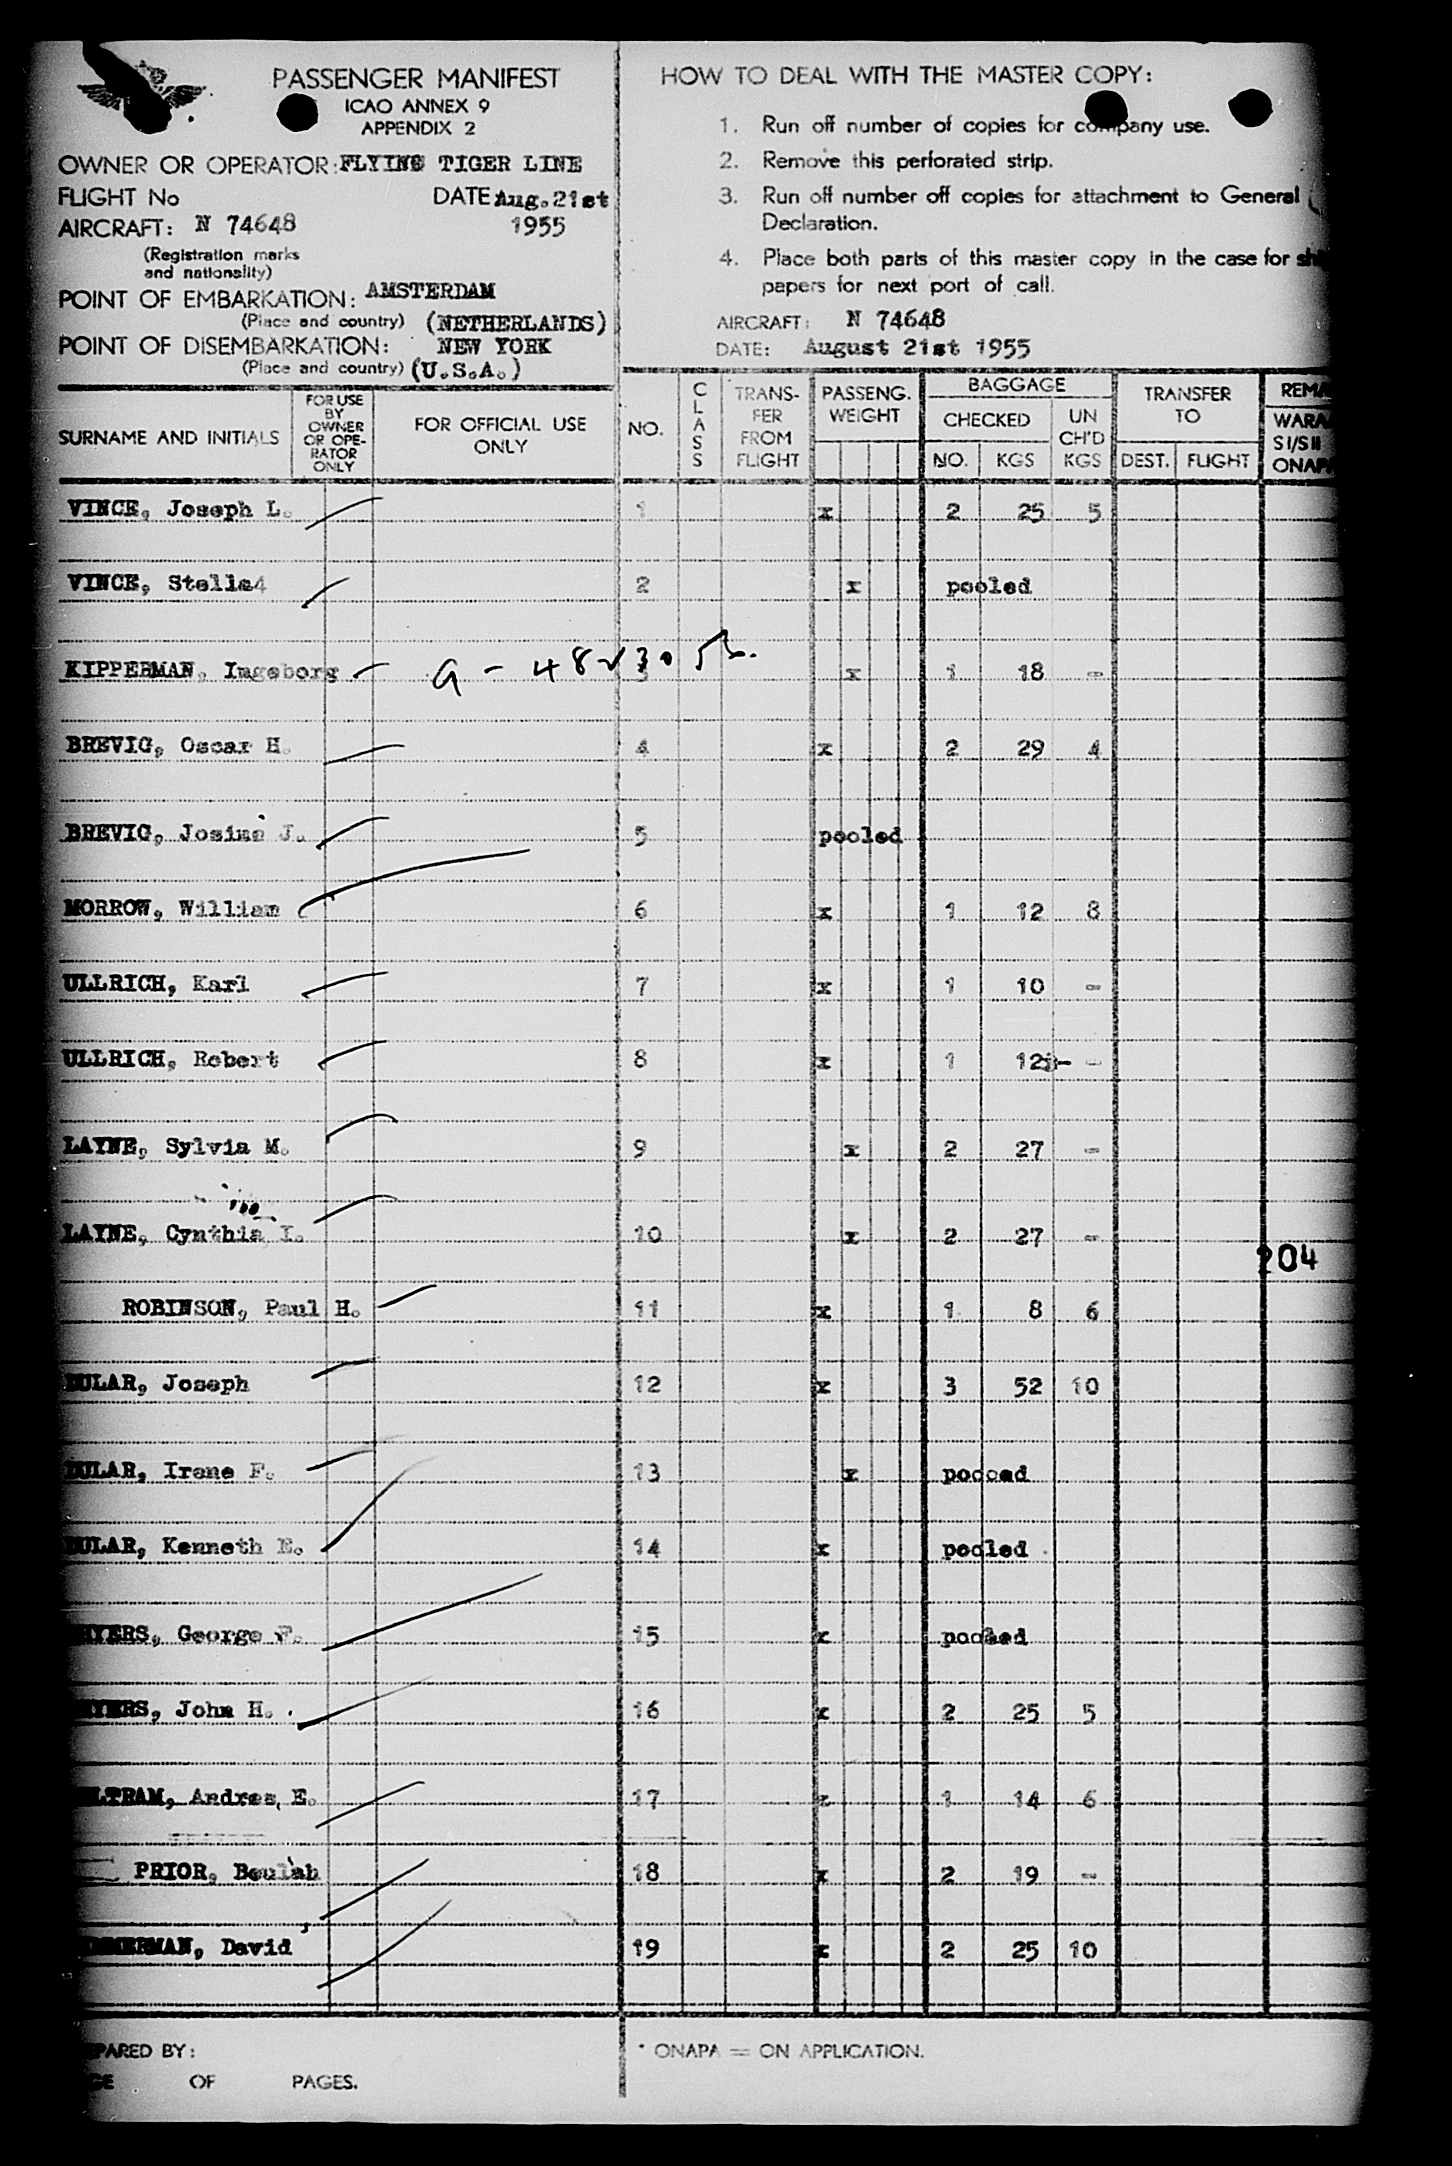 PASSENGER MANIFEST
ICAO ANNEX 9
APPENDIX 2
OWNER OR OPERATOR: FLYING TIGER LINE
FLIGHT No
DATE Aug. 21st
AIRCRAFT: N 74648
1955
(Registration marks
and nationality)
POINT OF EMBARKATION: AMSTERDAM
(Place and country) (NETHERLANDS)
POINT OF DISEMBARKATION: NEW YORK
(Place and country) (U.S.A.)
HOW TO DEAL WITH THE MASTER COPY:
1. Run off number of copies for company use.
2. Remove this perforated strip.
3. Run off number off copies for attachment to General
Declaration.
4. Place both parts of this master copy in the case for
papers for next port of call.
AIRCRAFT: N 74648
DATE: August 21st 1955
SURNAME AND INITIALS
FOR USE
BY
OWNER
OR OPE-
RATOR
ONLY
FOR OFFICIAL USE
ONLY
NO.
CLASS
TRANS-
FER
FROM
FLIGHT
PASSENG.
WEIGHT
BAGGAGE
CHECKED
NO. KGS
UN
CH'D
KGS
TRANSFER
TO
DEST. FLIGHT
VINCE, Joseph L. 1 x 2 25 5
VINCE, Stella4 2 x pooled
KIPPERMAN, Ingeborg 3 x 1 18 -
BREVIG, Oscar H. 4 x 2 29 4
BREVIG, Josine J. 5 pooled
MORROW, William 6 x 1 12 8
ULLRICH, Karl 7 x 1 10 -
ULLRICH, Robert 8 x 1 12 -
LAYNE, Sylvia M. 9 x 2 27 -
LAYNE, Cynthia I. 10 x 2 27 -
204
ROBINSON, Paul H. 11 x 1 8 6
Joseph 12 x 3 52 10
Irene F. 13 x poooed
Kenneth E. 14 x pooled
George F. 15 x pooled
John H. 16 x 2 25 5
Andres E. 17 x 1 14 6
PRIOR, Beulah 18 x 2 19 -
David 19 x 2 25 10
BY:
OF PAGES.
* ONAPA = ON APPLICATION.